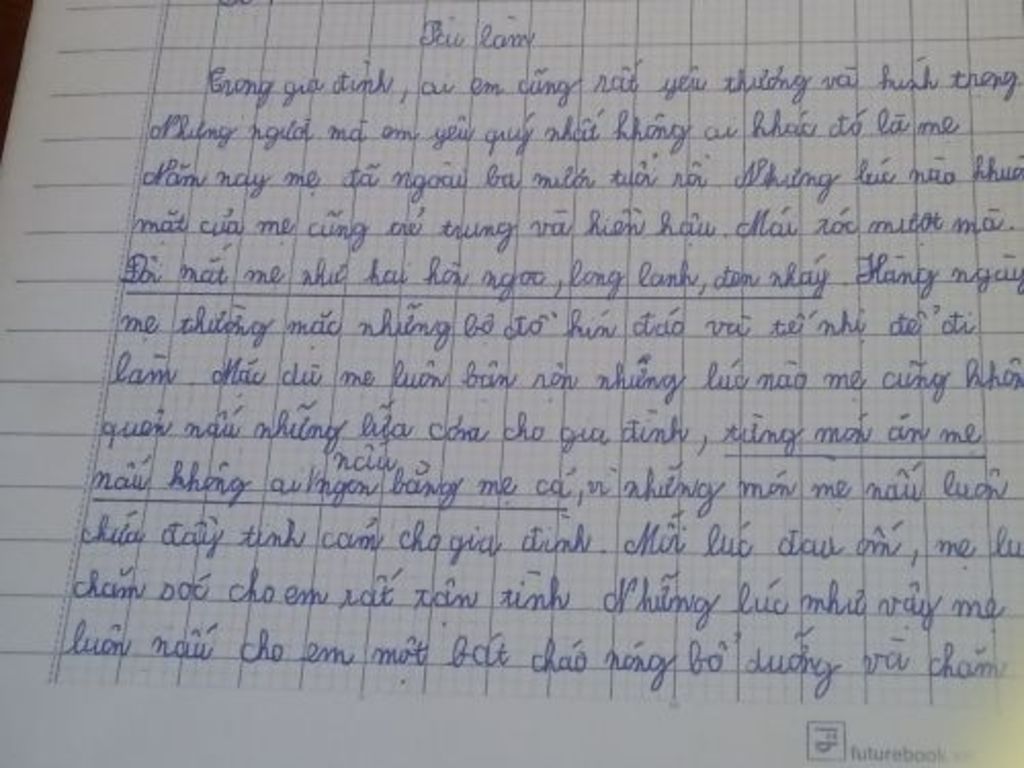 Bài làm
Trong gia đình, ai em cũng rất yêu thương và kính trọng.
Nhưng người mà em yêu quý nhất không ai khác đó là mẹ
Năm nay mẹ đã ngoài ba mươi tuổi rồi Nhưng lúc nào khuôn
mặt của mẹ cũng trẻ trung và hiền hậu. Mái tóc mượt mà.
Đôi mắt mẹ như hai hòn ngọc, long lanh, đen nháy. Hàng ngày
mẹ thường mặc những bộ đồ kín đáo và tế nhị để đi
làm. Mặc dù mẹ luôn bận rộn nhưng lúc nào mẹ cũng không
quên nấu những bữa cơm cho gia đình, từng món ăn mẹ
nấu không ai nấu ngon bằng mẹ cả, vì những món mẹ nấu luôn
chứa đầy tình cảm cho gia đình. Mỗi lúc đau ốm, mẹ lu
chăm sóc cho em rất tận tình Những lúc như vậy mẹ
luôn nấu cho em một bát cháo nóng bổ dưỡng và chăm
futurebook